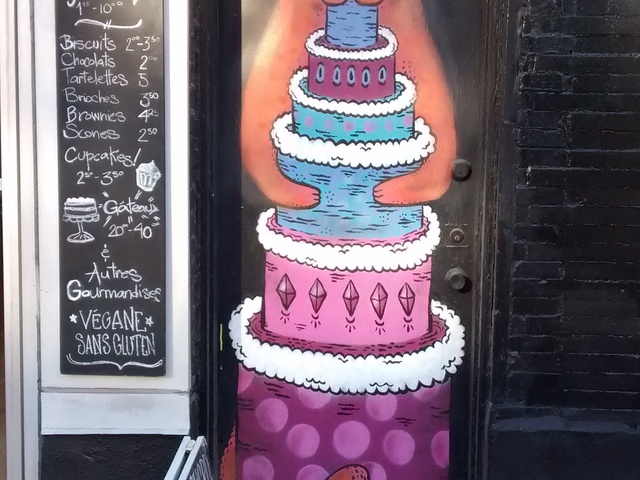 Biscuits 2⁰⁰-3⁵⁰
Chocolats 2
Tartelettes 5
Brioches 3⁵⁰
Brownies 4²⁵
Scones 2⁵⁰
Cupcakes!
2⁵⁰-3⁵⁰
Gâteau
20⁰⁰-40⁰⁰
&
Autres
Gourmandises
VÉGANE
SANS GLUTEN